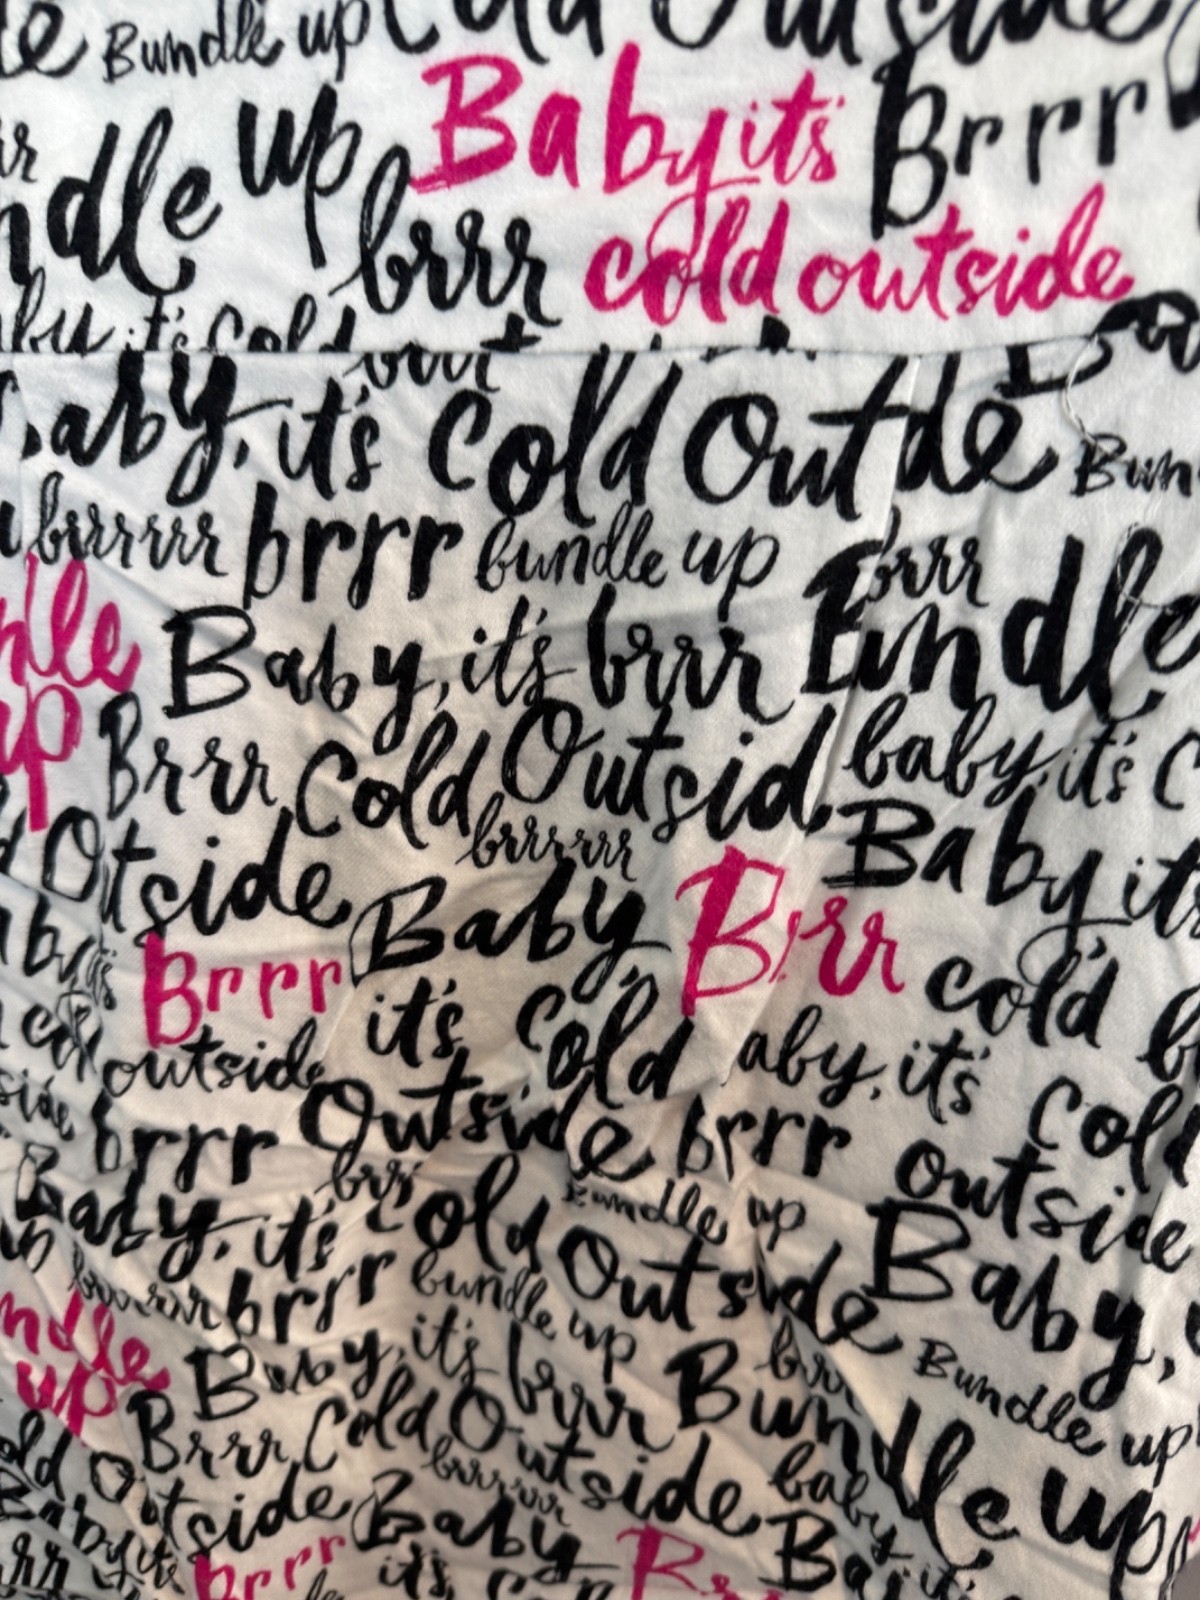 Bundle up Cold Outside
up Baby it's Brrr
dle brrr cold outside
it's Cold
aby, it's Cold Outde Bun
brrrrrr brrr bundle up brrr
ndle Baby, it's brrr Bundle
up Brrr Cold Outsid baby, it's C
Outside brrrrrr Baby it's
Brrr Baby Brrr cold
outside it's Cold aby, it's Cold
brrr Outside brrr outside
Baby, it's Cold Bundle up Baby,
brrr bundle up Outside
ndle up Baby, it's brrr Bundle up Bundle up
Brrr Cold Outside baby
Outside brrrrrr Baby
Brrr it's